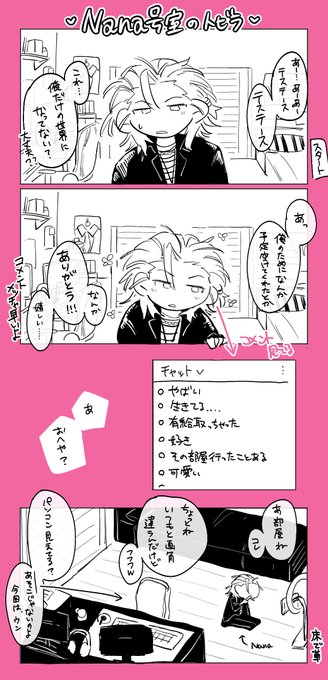 ♡Nana号室のトビラ♡
あー…あーあー
テステース
テステース
スタート
これ…
俺だけの世界に
なってないて
大丈夫？
あっ
俺のためになんか
予定空けてくれたとか
なんか
ありがとう!!!
嬉しい……
コメント
メッチャ見いよ
コメント
見てる
チャット∨
やばい
生きてる....
有給取っちゃった
好き
その部屋行ったことある
可愛い
あ
おへや？
あ部屋ね
コレ
ちょっとね
いつもと画角
違うんだけど
フフフw
パソコン見えてる？
あそこじゃないのよ
今回は、ウン
Nana
床で草